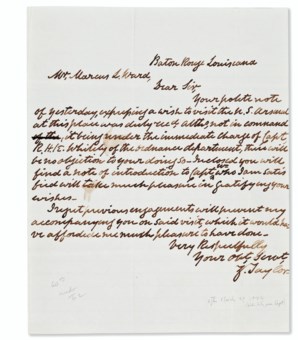 Baton Rouge Louisiana
Mr. Marcus L. Ward
Dear Sir
Your polite note
of yesterday, expressing a wish to visit the U.S. Arsenal
at this place was duly rec'd. Altho, not in command
it being under the immediate charge of Capt.
R. H. K. Whitely of the ordnance department, there will
be no objection to your doing so. Inclosed you will
find a note of introduction to Capt. who I am satis
fied will take much pleasure in gratifying your
wishes.
I regret previous engagements will prevent my
accompanying you on said visit, which it would ha
ve afforded me much pleasure to have done.
Very Respectfully
Your Obt Servt
Z. Taylor.